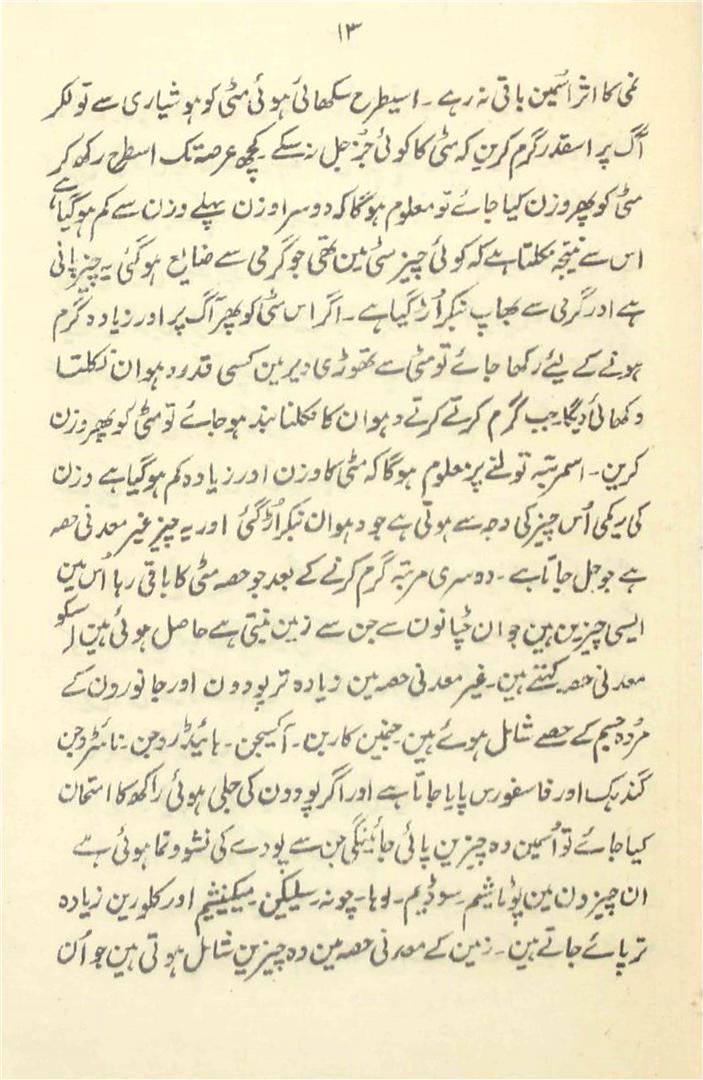 ۱۳
نمی کا اثر اسمین باقی نہ رہے ۔ اسیطرح سکھائی ہوئی مٹی کو ہوشیاری سے تولکر
آگ پر اسقدر گرم کرین کہ مٹی کا کوئی جُز جل نہ سکے ۔ کچھ عرصہ تک اسطرح رکھ کر
مٹی کو پھر وزن کیا جائے تو معلوم ہوگا کہ دوسرا وزن پہلے وزن سے کم ہوگیا ہے
اس سے نتیجہ نکلتا ہے کہ کوئی چیز مٹی مین تھی جو گرمی سے ضایع ہوگئی یہ چیز پانی
ہے اور گرمی سے بھاپ بنکر اُڑ گیا ہے ۔ اگر اس مٹی کو پھر آگ پر اور زیادہ گرم
ہونے کے لیئے رکھا جائے تو مٹی سے تھوڑی دیر مین کسی قدر دہوان نکلتا
دکھائی دیگا۔ جب گرم کرتے کرتے دہوان کا نکلنا بند ہو جائے تو مٹی کو پھر وزن
کرین ۔ اسمرتبہ تولنے پر معلوم ہوگا کہ مٹی کا وزن اور زیادہ کم ہوگیا ہے وزن
کی یہ کمی اُس چیز کی وجہ سے ہوتی ہے جو دہوان بنکر اُڑ گئی اور یہ چیز غیر معدنی حصہ
ہے جو جل جاتا ہے ۔ دوسری مرتبہ گرم کرنے کے بعد جو حصہ مٹی کا باقی رہا اُس مین
ایسی چیزین ہین جو ان چٹانون سے جن سے زمین بنتی ہے حاصل ہوئی ہین اسکو
معدنی حصہ کہتے ہین ۔ غیر معدنی حصہ مین زیادہ تر پودون اور جانورون کے
مُردہ جسم کے حصے شامل ہوئے ہین ۔ جنمین کاربن ۔ آکسیجن ۔ ہائیڈروجن ۔ نائٹروجن
گندہک اور فاسفورس پایا جاتا ہے اور اگر پودون کی جلی ہوئی راکھ کا امتحان
کیا جائے تو اُسمین وہ چیزین پائی جائینگی جن سے پودے کی نشو و نما ہوئی ہے
ان چیزون مین پوٹاشیم ۔ سوڈیم ۔ لوہا ۔ چونہ ۔ سلیکن ۔ میگنیشیم اور کلورین زیادہ
تر پائے جاتے ہین ۔ زمین کے معدنی حصہ مین وہ چیزین شامل ہوتی ہین جو اُن